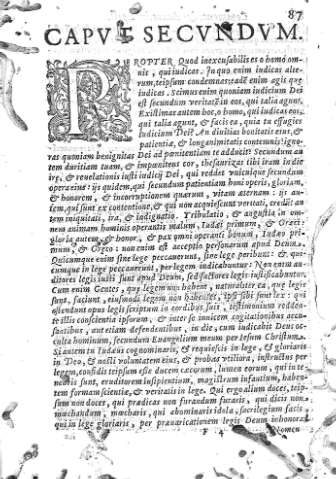 87
CAPVT SECVNDVM.
PROPTER Quod inexcusabilis es o homo om-
nis, qui iudicas. In quo enim iudicas alte-
rum, teipsum condemnas: eadē enim agis que
iudicas. Scimus enim quoniam iudicium Dei
est secundum veritatē in eos, qui talia agunt.
Existimas autem hoc, o homo, qui iudicas eos,
qui talia agunt, & facis ea, quia tu effugies
iudicium Dei? An diuitias bonitatis eius, &
patientiæ, & longanimitatis contemnis? igno-
ras quoniam benignitas Dei ad pœnitentiam te adducit? Secundum au
tem duritiam tuam, & impœnitens cor, thesaurizas tibi iram in die
iræ, & reuelationis iusti iudicij Dei, qui reddet vnicuique secundum
opera eius: ijs quidem, qui secundum patientiam boni operis, gloriam,
& honorem, & incorruptionem quærunt, vitam æternam: ijs au-
tem, qui sunt ex contentione, & qui non acquiescunt veritati, credūt au
tem iniquitati, ira, & indignatio. Tribulatio, & angustia in om-
nem animam hominis operantis malum, Iudæi primum, & Græci:
gloria autem, & honor, & pax omni operanti bonum, Iudæo pri-
mum, & Græco: non enim est acceptio personarum apud Deum.
Quicumque enim sine lege peccauerunt, sine lege peribunt: & qui-
cumque in lege peccauerunt, per legem iudicabuntur: Non enim au-
ditores legis iusti sunt apud Deum, sed factores legis iustificabuntur.
Cum enim Gentes, quæ legem non habent, naturaliter ea, quæ legis
sunt, faciunt, eiusmodi legem non habentes, ipsi sibi sunt lex: qui
ostendunt opus legis scriptum in cordibus suis, testimonium redden-
te illis conscientia ipsorum, & inter se inuicem cogitationibus accu-
santibus, aut etiam defendentibus, in die, cum iudicabit Deus oc-
culta hominum, secundum Euangelium meum per Iesum Christum.
Si autem tu Iudæus cognominaris, & requiescis in lege, & gloriaris
in Deo, & nosti voluntatem eius, & probas vtiliora, instructus per
legem, confidis teipsum esse ducem cæcorum, lumen eorum, qui in te-
nebris sunt, eruditorem insipientium, magistrum infantium, haben-
tem formam scientiæ, & veritatis in lege. Qui ergo alium doces, teip-
sum non doces, qui prædicas non furandum furaris, qui dicis non
mœchandum, mœcharis, qui abominaris idola, sacrilegium facis
qui in lege gloriaris, per præuaricationem legis Deum inhonoras
F 4 Nomen